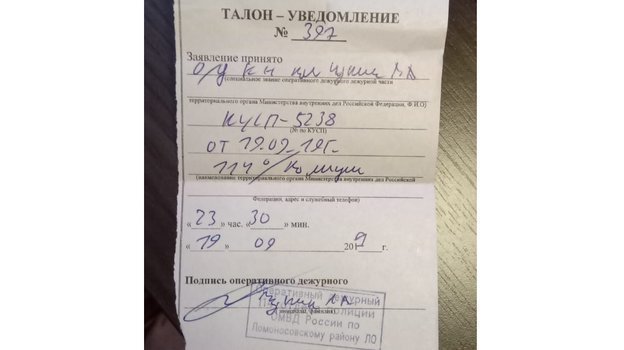 ТАЛОН – УВЕДОМЛЕНИЕ
№ 397
Заявление принято
(специальное звание оперативного дежурного дежурной части
территориального органа Министерства внутренних дел Российской Федерации, Ф.И.О)
КУСП-5238
(№ по КУСП)
от 19.09.19г.
114 о/ полиции
(наименование территориального органа Министерства внутренних дел Российской
Федерации, адрес и служебный телефон)
« 23 » час. « 30 » мин.
« 19 » 09 2019 г.
Подпись оперативного дежурного
Оперативный дежурный
полиции
ОМВД России по
Ломоносовскому району ЛО